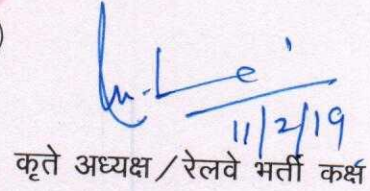 )
11/2/19
कृते अध्यक्ष / रेलवे भर्ती कक्ष